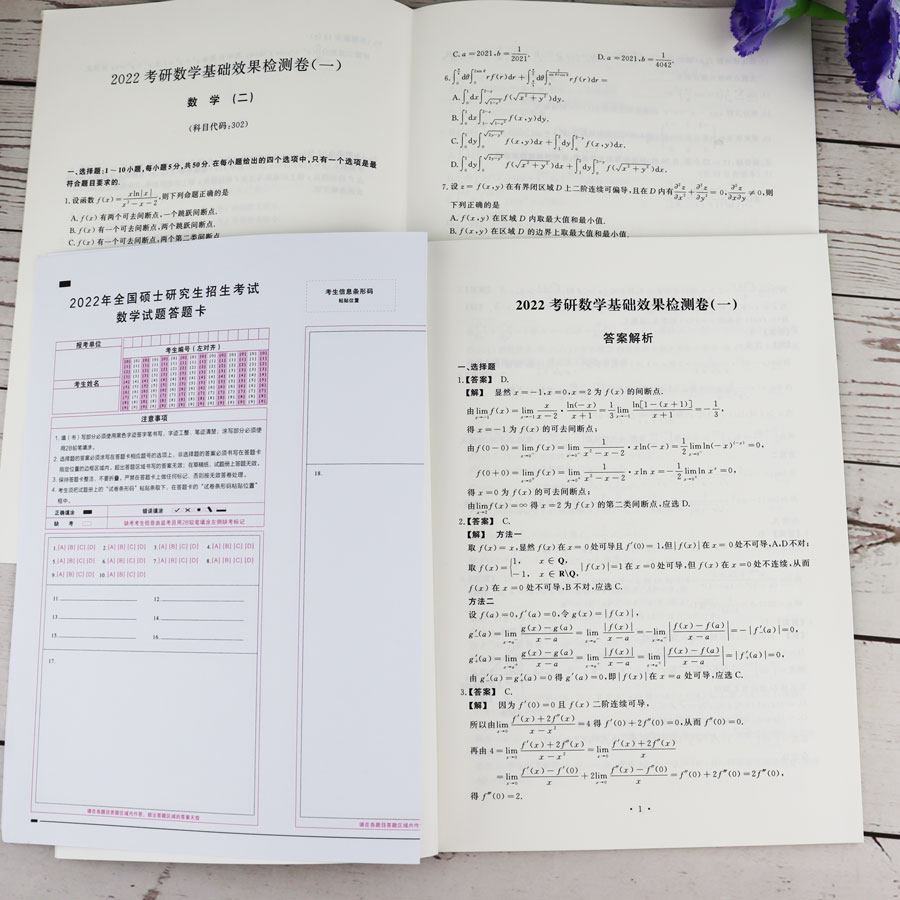 2022 考研数学基础效果检测卷(一)
数 学 (二)
(科目代码:302)
一、选择题:1~10小题,每小题5分,共50分.在每小题给出的四个选项中,只有一个选项是最
符合题目要求的.
1.设函数 f(x)=\frac{x\ln|x|}{x²-x-2},则下列命题正确的是
A. f(x)有两个可去间断点,一个跳跃间断点.
B. f(x)有一个可去间断点,两个跳跃间断点.
C. f(x)有一个可去间断点,两个第二类间断点.
C. a=2021,b=\frac{1}{2021}.
D. a=2021,b=\frac{1}{4042}.
B. f(x,y)dy.
7.设 z=f(x,y)在有界闭区域 D 上二阶连续可偏导,且在 D 内有\frac{∂²z}{∂x²}+\frac{∂²z}{∂y²}=0,\frac{∂²z}{∂x∂y}≠0,则
下列正确的是
A. f(x,y)在区域 D 内取最大值和最小值.
B. f(x,y)在区域 D 的边界上取最大值和最小值.
2022年全国硕士研究生招生考试
数学试题答题卡
考生信息条形码
粘贴位置
报考单位
考生编号(左对齐)
考生姓名
注意事项
1. 填(书)写部分必须使用黑色字迹签字笔书写,字迹工整、笔迹清楚;涂写部分必须使
用2B铅笔填涂。
2. 选择题的答案必须涂写在答题卡相应题号的选项上,非选择题的答案必须书写在答题卡
指定位置的边框区域内。超出答题区域书写的答案无效;在草稿纸、试题册上答题无效。
3. 保持答题卡整洁、不要折叠,严禁在答题卡上做任何标记,否则按无效答卷处理。
4. 考生须把试题册上的“试卷条形码”粘贴条取下,在答题卡的“试卷条形码粘贴位置”
框中。
正确填涂 错误填涂
缺 考 缺考考生信息由监考员用2B铅笔填涂左侧缺考标记
1.[A] [B] [C] [D] 2.[A] [B] [C] [D] 3.[A] [B] [C] [D] 4.[A] [B] [C] [D]
5.[A] [B] [C] [D] 6.[A] [B] [C] [D] 7.[A] [B] [C] [D] 8.[A] [B] [C] [D]
9.[A] [B] [C] [D] 10.[A] [B] [C] [D]
11 12
13. 14.
15. 16.
17.
18.
请在各题目答题区域内作答,超出答题区域的答案无效
请在各题目答题区域内作
2022 考研数学基础效果检测卷(一)
答案解析
一、选择题
1.【答案】 D.
【解】 显然 x=-1,x=0,x=2 为 f(x)的间断点.
由\lim_{x→-1}f(x)=\lim_{x→-1}\frac{x}{x-2}·\frac{\ln(-x)}{x+1}=\frac{1}{3}\lim_{x→-1}\frac{\ln[1-(x+1)]}{x+1}=-\frac{1}{3},
得 x=-1 为 f(x)的可去间断点;
由 f(0-0)=\lim_{x→0⁻}f(x)=\lim_{x→0⁻}\frac{1}{x²-x-2}·x\ln(-x)=\frac{1}{2}\lim_{x→0⁻}\ln(-x)^{(-x)}=0,
f(0+0)=\lim_{x→0⁺}f(x)=\lim_{x→0⁺}\frac{1}{x²-x-2}·x\ln x=-\frac{1}{2}\lim_{x→0⁺}\ln xˣ=0,
得 x=0 为 f(x)的可去间断点;
由\lim_{x→2}f(x)=∞得 x=2 为 f(x)的第二类间断点,应选 D.
2.【答案】 C.
【解】 方法一
取 f(x)=x,显然 f(x)在 x=0 处可导且 f′(0)=1,但|f(x)|在 x=0 处不可导,A、D不对;
取 f(x)={1, x∈Q,
-1, x∈R\Q, |f(x)|=1 在 x=0 处可导,但 f(x)在 x=0 处不连续,从而
f(x)在 x=0 处不可导,B不对,应选 C.
方法二
设 f(a)=0,f′(a)=0,令 g(x)=|f(x)|,
g′₋(a)=\lim_{x→a⁻}\frac{g(x)-g(a)}{x-a}=\lim_{x→a⁻}\frac{|f(x)|}{x-a}=-\lim_{x→a⁻}|\frac{f(x)-f(a)}{x-a}|=-|f′₋(a)|=0,
g′₊(a)=\lim_{x→a⁺}\frac{g(x)-g(a)}{x-a}=\lim_{x→a⁺}\frac{|f(x)|}{x-a}=\lim_{x→a⁺}|\frac{f(x)-f(a)}{x-a}|=|f′₊(a)|=0,
由 g′₋(a)=g′₊(a)=0 得 g′(a)=0,即|f(x)|在 x=a 处可导,应选 C.
3.【答案】 C.
【解】 因为 f′(0)=0 且 f(x)二阶连续可导,
所以由\lim_{x→0}\frac{f′(x)+2f″(x)}{x-x²}=4 得 f′(0)+2f″(0)=0,从而 f″(0)=0.
再由 4=\lim_{x→0}\frac{f′(x)+2f″(x)}{x-x²}=\lim_{x→0}\frac{f′(x)+2f″(x)}{x}
=\lim_{x→0}\frac{f′(x)-f′(0)}{x}+2\lim_{x→0}\frac{f″(x)-f″(0)}{x}=f″(0)+2f‴(0)=2f‴(0),
得 f‴(0)=2.
· 1 ·